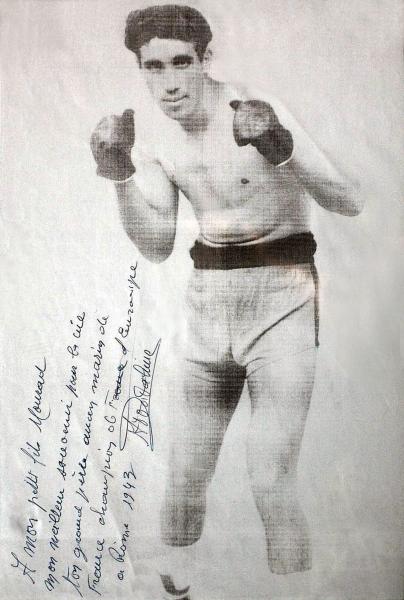 A mon petit fils Mourad
mon meilleur souvenir pour la vie
ton grand père ancien marin de
France champion de d'Europe
a Rome 1943